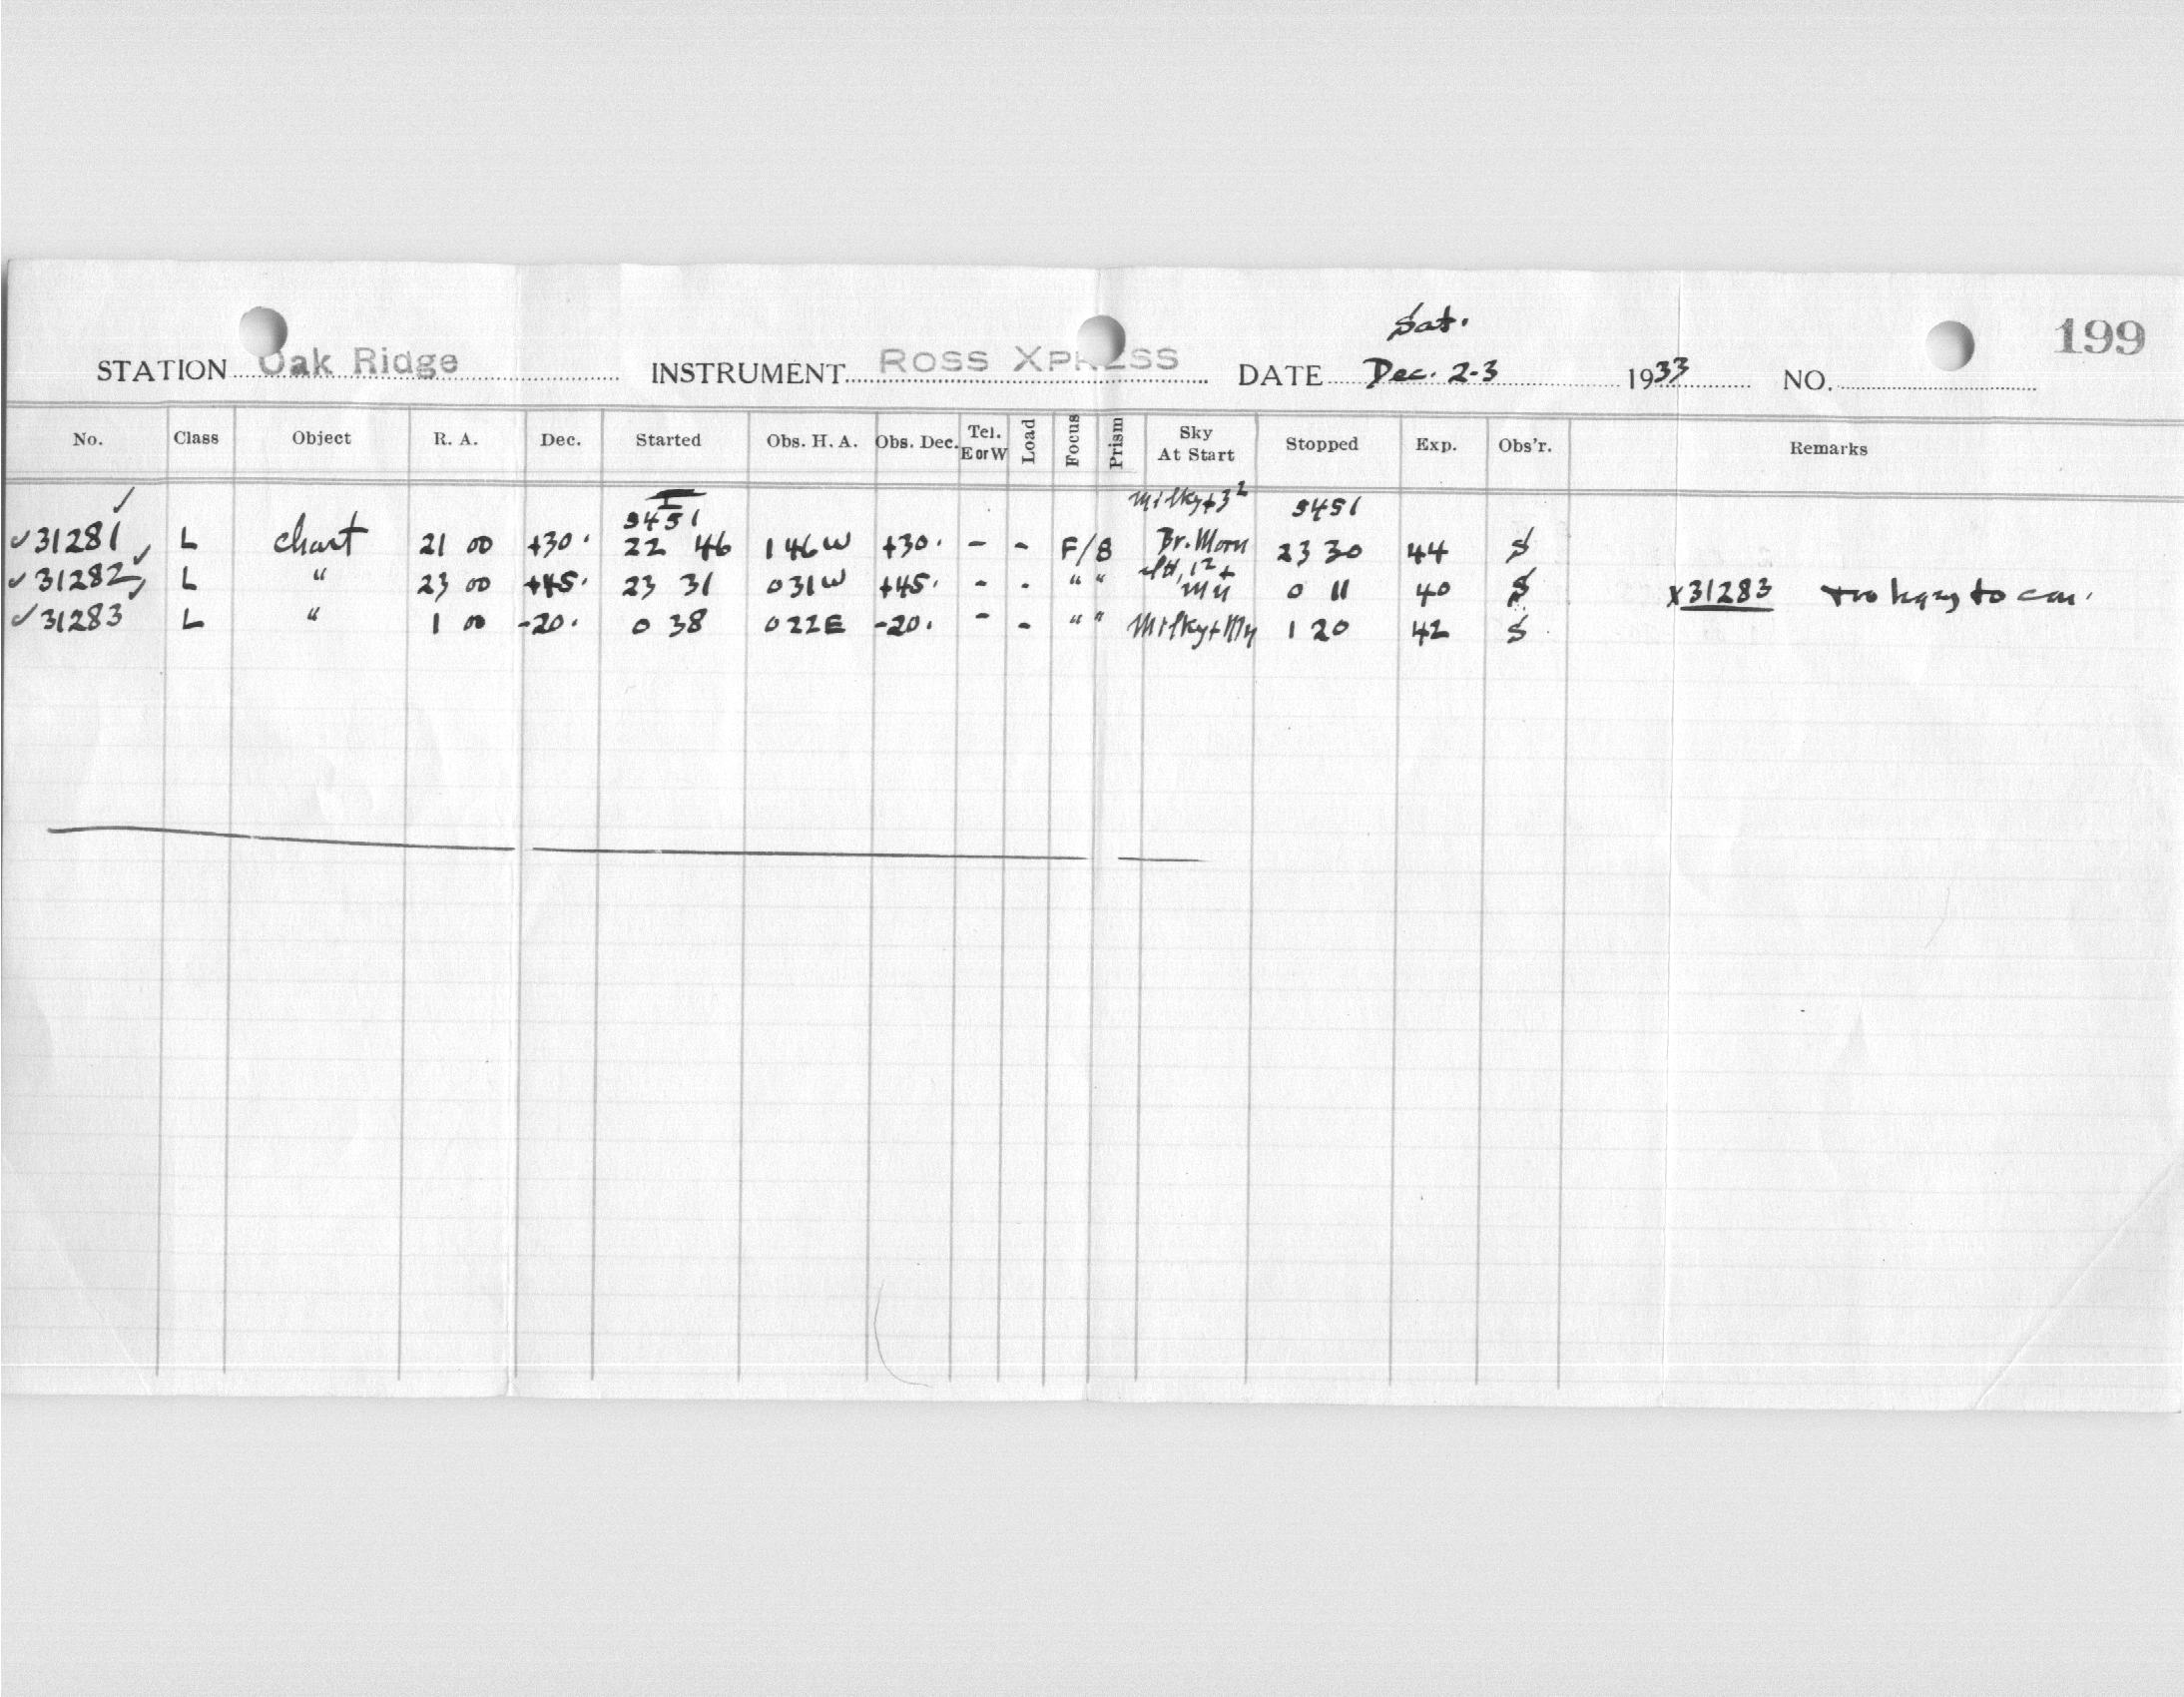 Sat.
199
STATION Oak Ridge INSTRUMENT ROSS XPRESS DATE Dec. 2-3 1933 NO.
No. Class Object R. A. Dec. Started Obs. H. A. Obs. Dec. Tel. E or W Load Focus Prism Sky At Start Stopped Exp. Obs'r. Remarks
I
5451 Milky+3² 5451
✓31281 ✓ L chart 21 00 +30. 22 46 1 46 W +30. - - F/8 Br. Moon 23 30 44 S
✓31282 ✓ L " 23 00 +45. 23 31 0 31 W +45. - - " " 0 11 40 S x31283 too hazy to con.
✓31283 L " 1 00 -20. 0 38 0 22 E -20. - - " " Milky+My 1 20 42 S